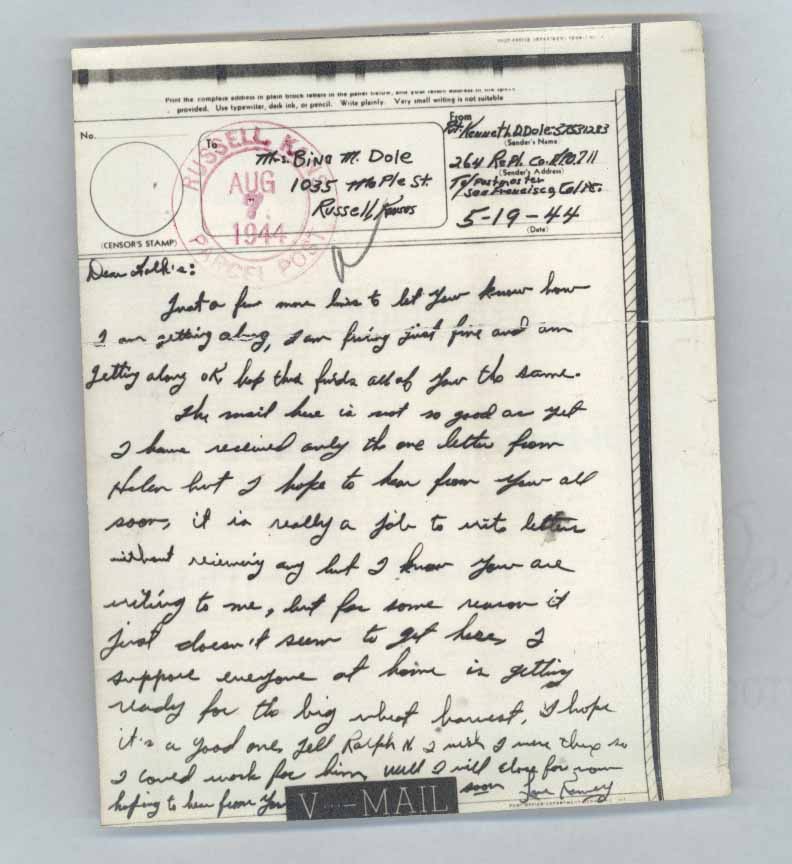 Print the complete address in plain block letters in the panel below, and your return address in the space
provided. Use typewriter, dark ink, or pencil. Write plainly. Very small writing is not suitable
No.
To
Mrs. Bina M. Dole
1035 Maple St.
Russell, Kansas
(CENSOR'S STAMP)
RUSSELL, KANS
AUG
7
1944
PARCEL POST
From
Pvt. Kenneth D Dole 37531283
(Sender's Name)
264 Repl. Co. APO. 711
(Sender's Address)
T/Postmaster
San Francisco, Calif.
5-19-44
(Date)
Dear Folk's:
Just a few more lines to let you know how
I am getting along, I am just fine and am
getting along OK hope this finds all of you the same.
The mail here is not so good as yet
I have received only the one letter from
Helen but I hope to hear from you all
soon, it is really a job to write letters
without receiving any but I know you are
writing to me, but for some reason it
just doesn't seem to get here, I
suppose everyone at home is getting
ready for the big wheat harvest, I hope
it's a good one, Tell Ralph I wish I were there so
I could work for him, well I will close for now
hoping to hear from you soon Love Kenny
V···–MAIL